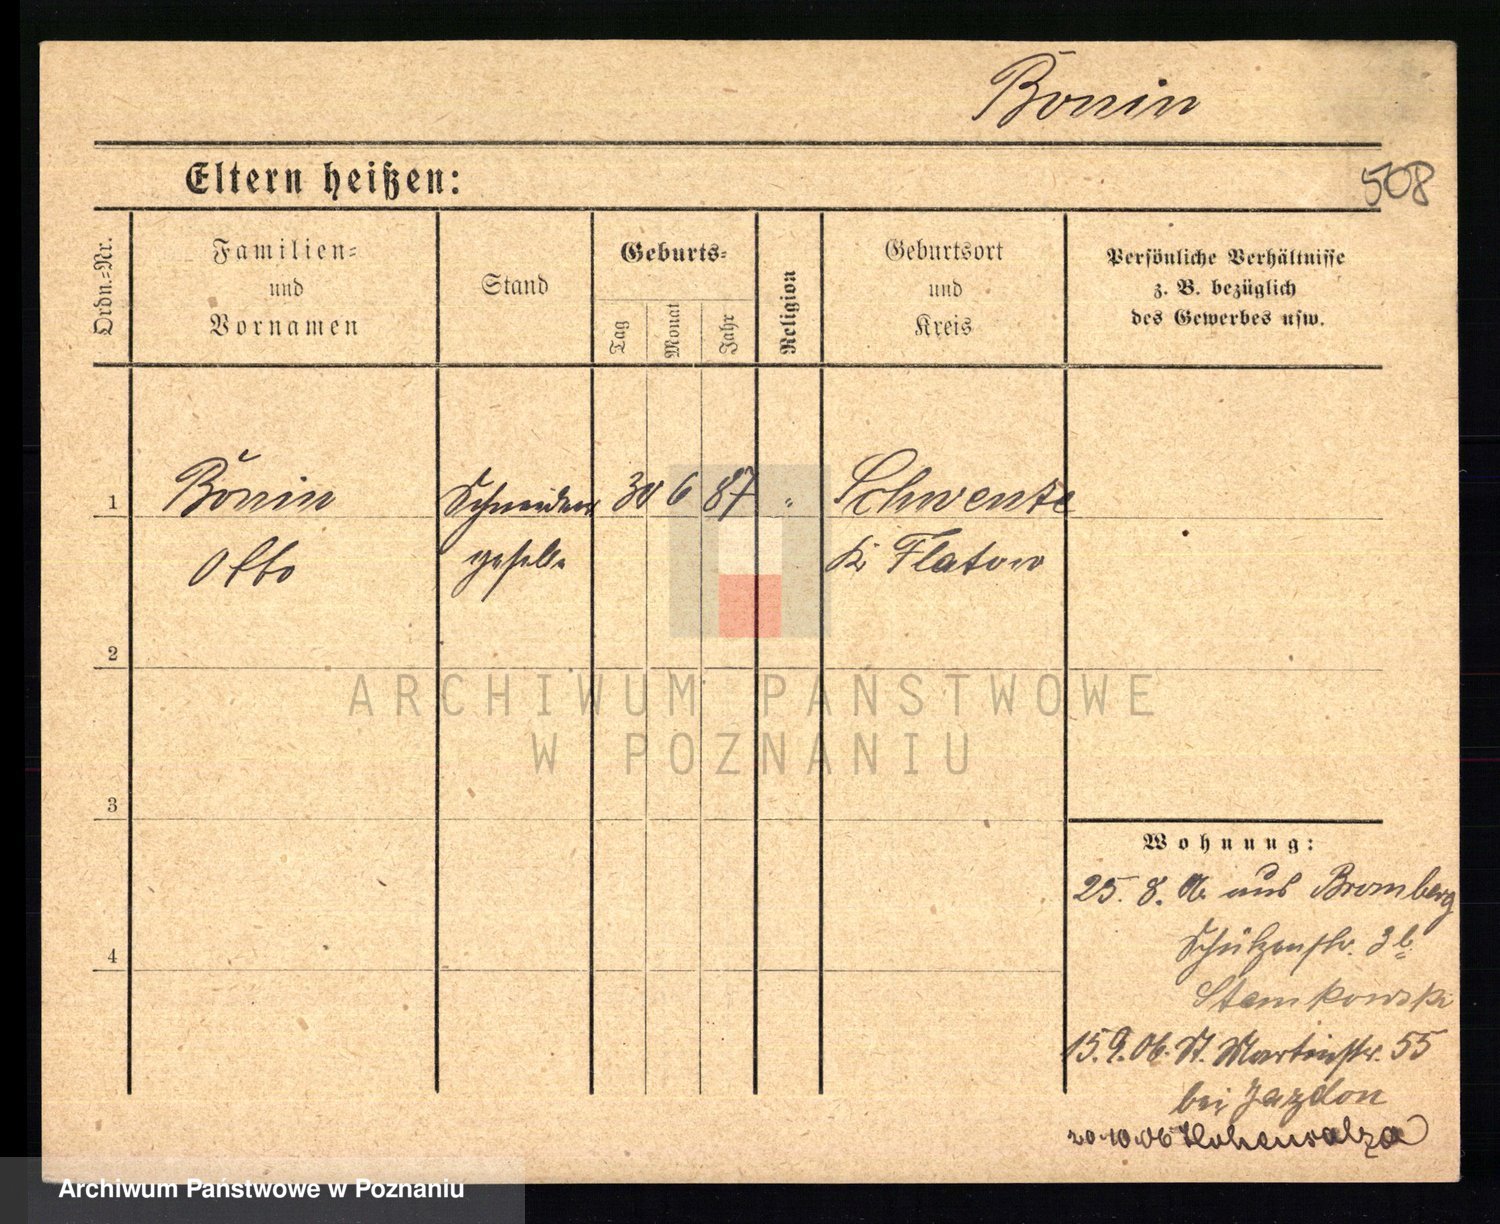 Bonin
Eltern heißen:
508
Ordn.-Nr.
Familien-
und
Vornamen
Stand
Geburts-
Tag
Monat
Jahr
Religion
Geburtsort
und
Kreis
Persönliche Verhältnisse
z. B. bezüglich
des Gewerbes usw.
1
Bonin
Schneider
30
6
87
"
Schwente
Otto
geselle
Kr Flatow
2
3
4
ARCHIWUM PAŃSTWOWE
W POZNANIU
Wohnung:
25. 8. 06 aus Bromberg
Schützenstr. 3 b.
Stamkowski
15.9.06. St. Martinstr. 55
bei Jazdon
20.10.06 Hohensalza
Archiwum Państwowe w Poznaniu